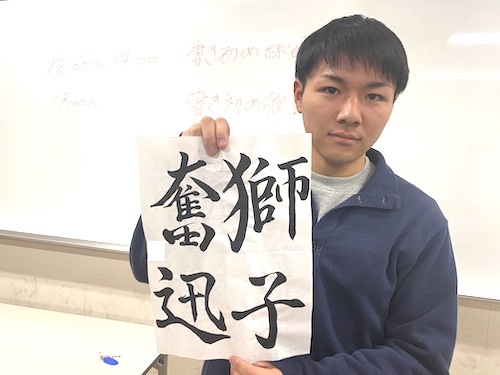 18:00〜19:00 書き初め
19:00〜 書き初め
獅子
奮迅